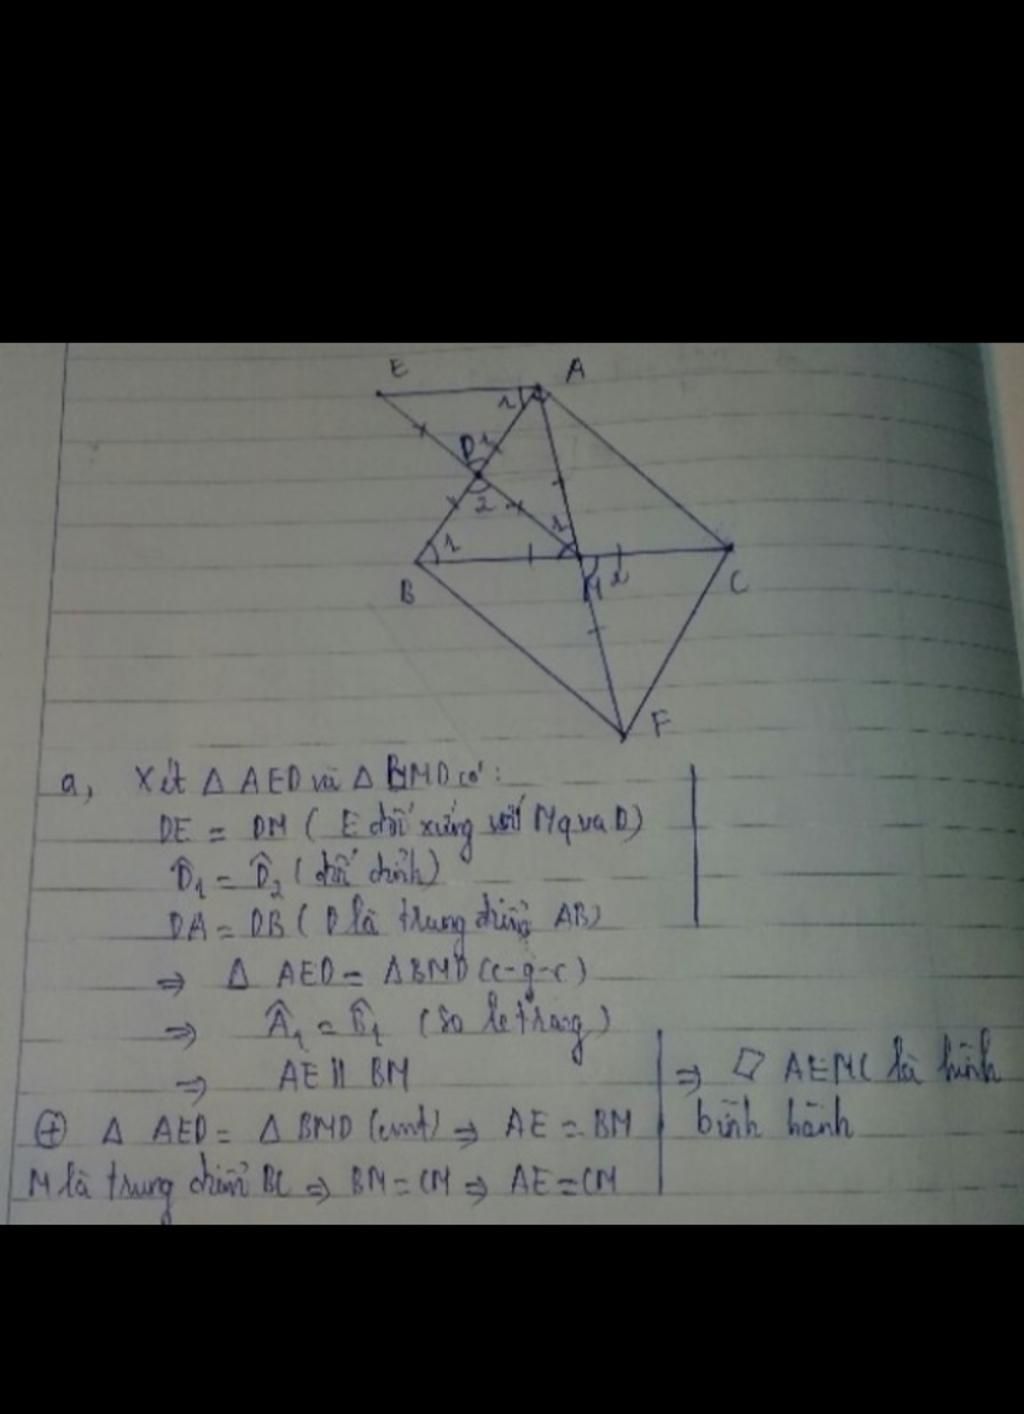 E A
1
D 1
2
1 1
B M 2 C
F
a, Xét Δ AED và Δ BMD có:
DE = DM ( E đối xứng với M qua D)
D̂1 = D̂2 ( đối đỉnh)
DA = DB ( D là trung điểm AB)
⇒ Δ AED = Δ BMD (c-g-c)
⇒ Â1 = B̂1 (so le trong)
⇒ AE // BM
⊕ Δ AED = Δ BMD (cmt) ⇒ AE = BM
M là trung điểm BC ⇒ BM = CM ⇒ AE = CM
⇒ ▱ AEMC là hình
bình hành